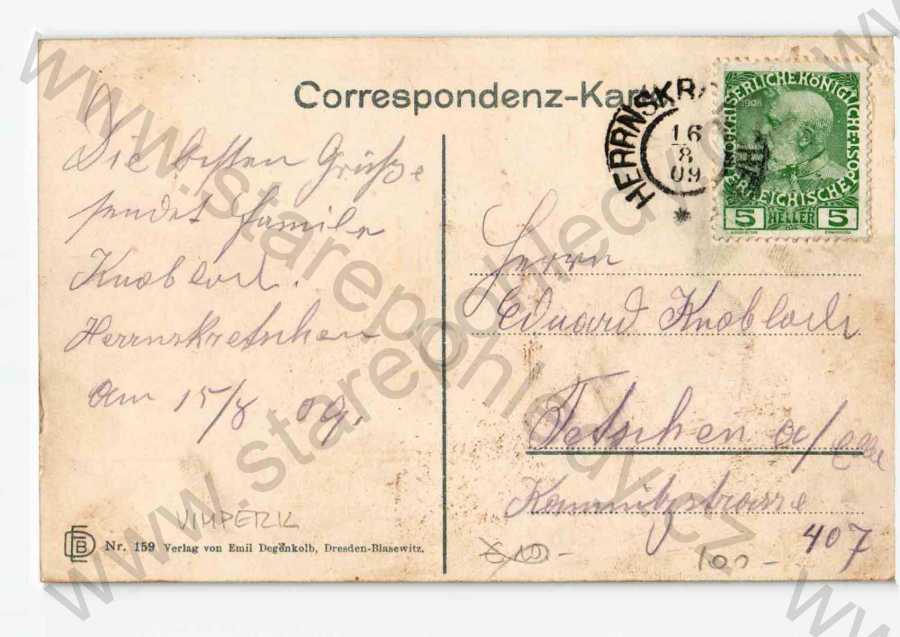 Correspondenz-Karte
HERRNSKR
16
8
09
1908
KAISERLICHE KÖNIGLICHE
ÖSTERREICHISCHE POST
5 HELLER 5
Die besten Grüße
sendet Familie
Knobloch.
Herrnskretschen
am 15/8 09.
Herrn
Eduard Knobloch
Tetschen a/Elbe
407
VIMPERK
100-
EDB
Nr. 159 Verlag von Emil Degenkolb, Dresden-Blasewitz.
www.starepohledy.cz